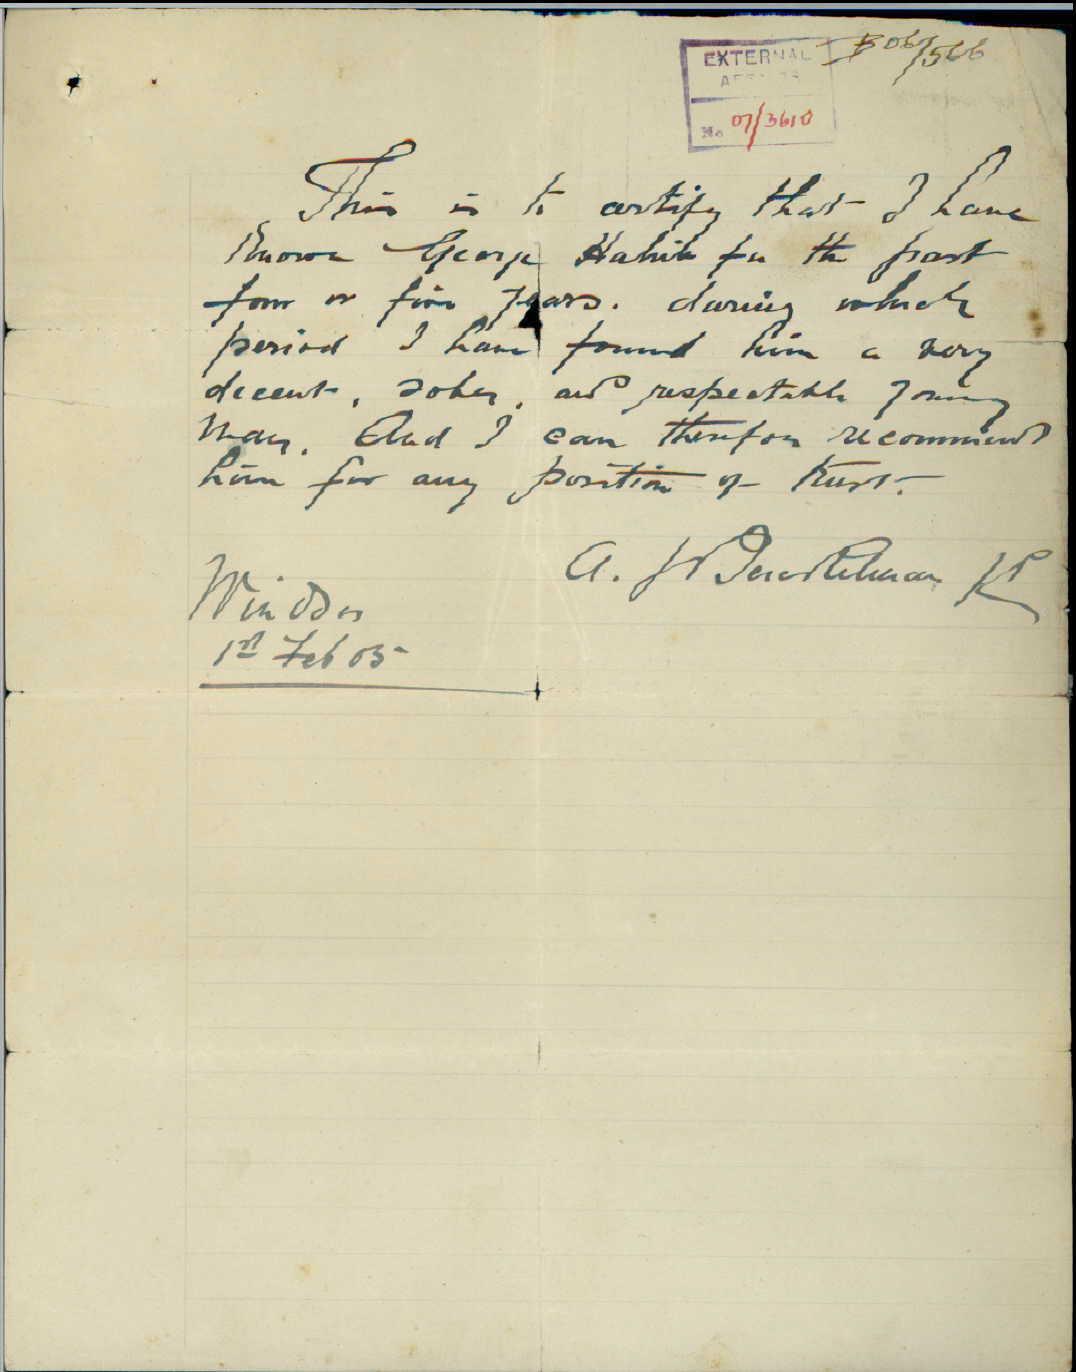 B 06/566
EXTERNAL
AFFAIRS
No 07/3610
This is to certify that I have
known George Habib for the past
four or five years. during which
period I have found him a very
decent, sober, and respectable young
man. And I can therefore recommend
him for any position of trust.
A. JP
Windsor
1st Feb 05